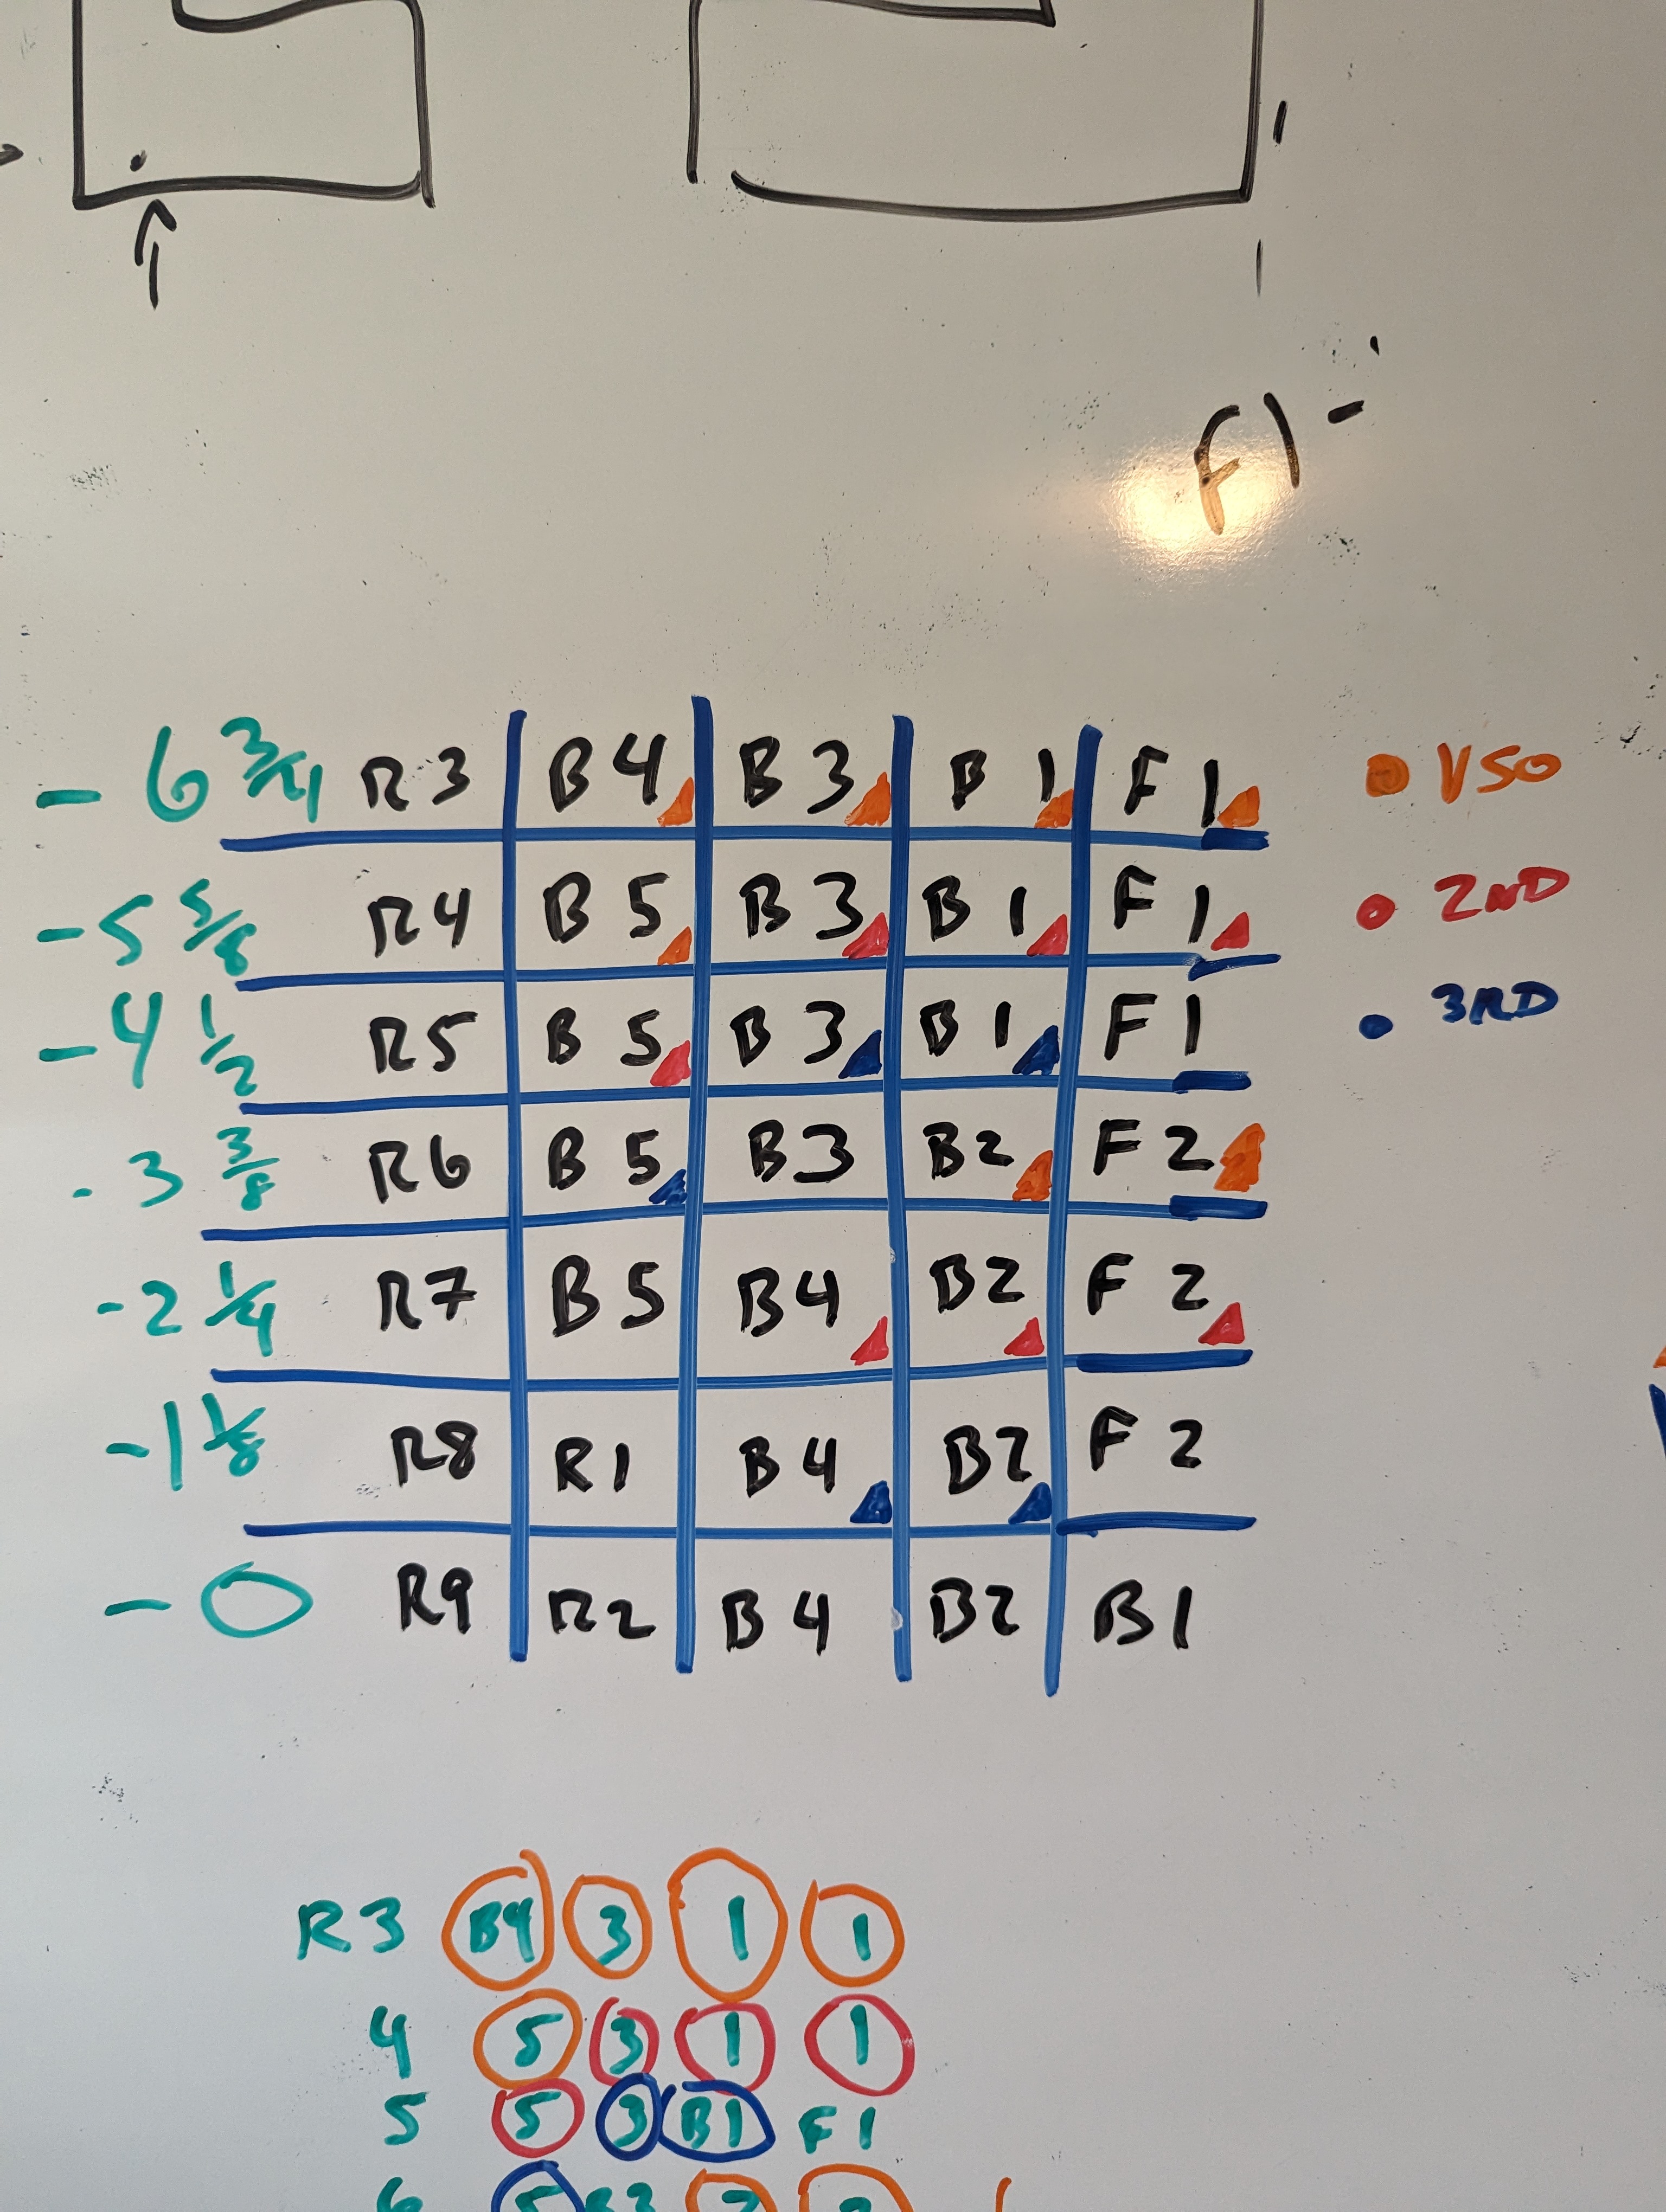 F1-
- 6 3/4 R3 B4 B3 B1 F1 VSO
- 5 5/8 R4 B5 B3 B1 F1 2ND
- 4 1/2 R5 B5 B3 B1 F1 3RD
- 3 3/8 R6 B5 B3 B2 F2
- 2 1/4 R7 B5 B4 B2 F2
- 1 1/8 R8 R1 B4 B2 F2
- 0 R9 R2 B4 B2 B1
R3 B4 3 1 1
4 5 3 1 1
5 5 3 B1 F1
6 5 B3 2 2